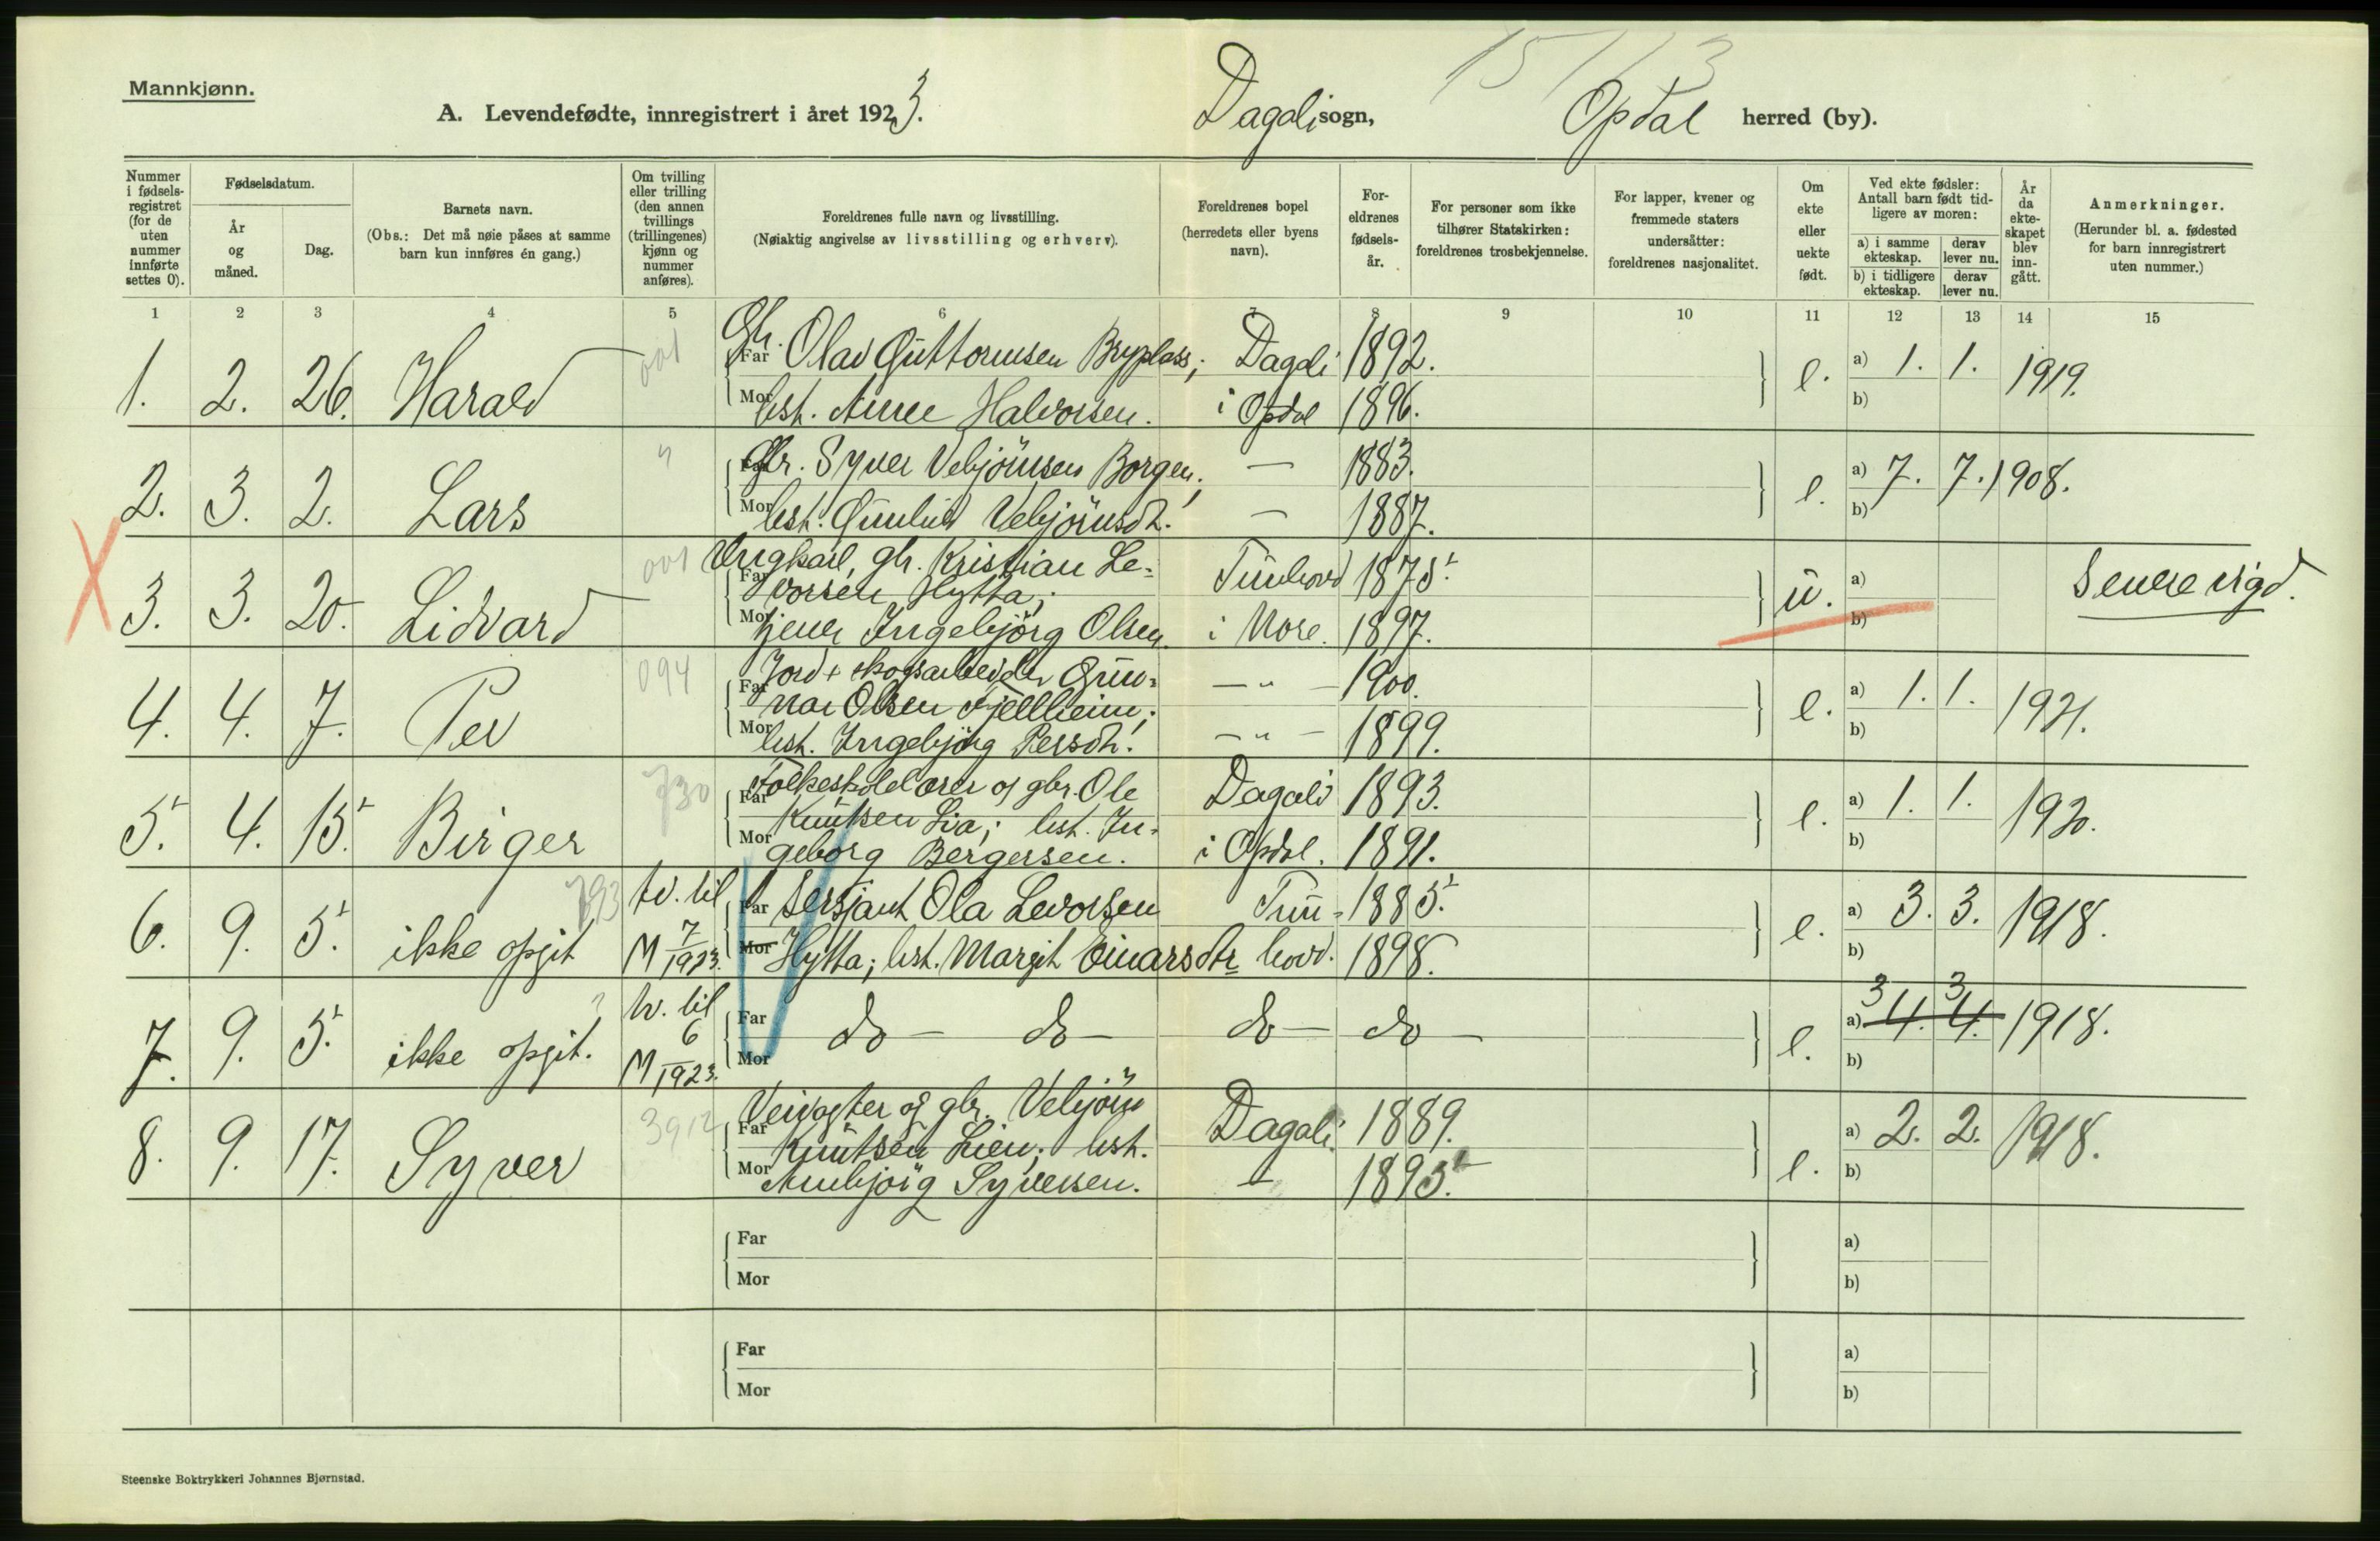 Mannkjønn.
15/13
A. Levendefødte, innregistrert i året 1923. Dagali sogn, Opdal herred (by).
Nummer i fødsels-registret (for de uten nummer innførte settes 0).
Fødselsdatum.
År og måned.
Dag.
Barnets navn.
(Obs.: Det må nøie påses at samme barn kun innføres én gang.)
Om tvilling eller trilling (den annen tvillings (trillingenes) kjønn og nummer anføres).
Foreldrenes fulle navn og livsstilling.
(Nøiaktig angivelse av livsstilling og erhverv).
Foreldrenes bopel (herredets eller byens navn).
For-eldrenes fødsels-år.
For personer som ikke tilhører Statskirken: foreldrenes trosbekjennelse.
For lapper, kvener og fremmede staters undersåtter: foreldrenes nasjonalitet.
Om ekte eller uekte født.
Ved ekte fødsler: Antall barn født tid-ligere av moren:
a) i samme ekteskap. derav lever nu.
b) i tidligere ekteskap. derav lever nu.
År da ekte-skapet blev inn-gått.
Anmerkninger.
(Herunder bl. a. fødested for barn innregistrert uten nummer.)
1 2 3 4 5 6 7 8 9 10 11 12 13 14 15
1. 2. 26. Harald 001 Far Gbr. Olav Guttormsen Bryplass; Dagali 1892. e. a) 1. 1. 1919.
Mor hst. Anne Halvorsen. i Opdal 1896. b)
2. 3. 2. Lars " Far Gbr. Syver Vebjörnsen Borgen; — 1883. e. a) 7. 7. 1908.
Mor hst. Gunhild Vebjörnsdt. — 1887. b)
X 3. 3. 20. Lidvard 001 Ungkarl, gbr. Kristian Le=
Far vorsen Hytta; Tunhovd 1875. u. a) Senere vigd.
Mor tjener Ingebjörg Olsen. i Nore. 1897. b)
4. 4. 7. Per 094 Jord + skogsarbeider Gun=
Far nar Olsen Fjellheim; — " — 1900. e. a) 1. 1. 1921.
Mor hst. Ingebjörg Persdt. — " — 1899. b)
5. 4. 15. Birger 730 Folkeskolelærer og gbr. Ole Dagali 1893. e. a) 1. 1. 1920.
Far Knutsen Lia; hst. In=
Mor geborg Bergersen. i Opdal. 1891. b)
6. 9. 5. ikke opgit 793 tv. til M 7 1923. Far Sersjant Ola Levorsen Tun= 1885. e. a) 3. 3. 1918.
Mor Hytta; hst. Margit Einarsdtr hovd. 1898. b)
7. 9. 5. ikke opgit. ? tv. til 6 M 1923. Far do — do — do — do — e. a) 4. 4. 3 3 1918.
Mor b)
8. 9. 17. Syver 3912 Veivogter og gbr. Vebjörn Dagali 1889. e. a) 2. 2. 1918.
Far Knutsen Lien; hst.
Mor Annbjörg Syversen. — 1895. b)
Far a)
Mor b)
Far a)
Mor b)
Steenske Boktrykkeri Johannes Bjørnstad.